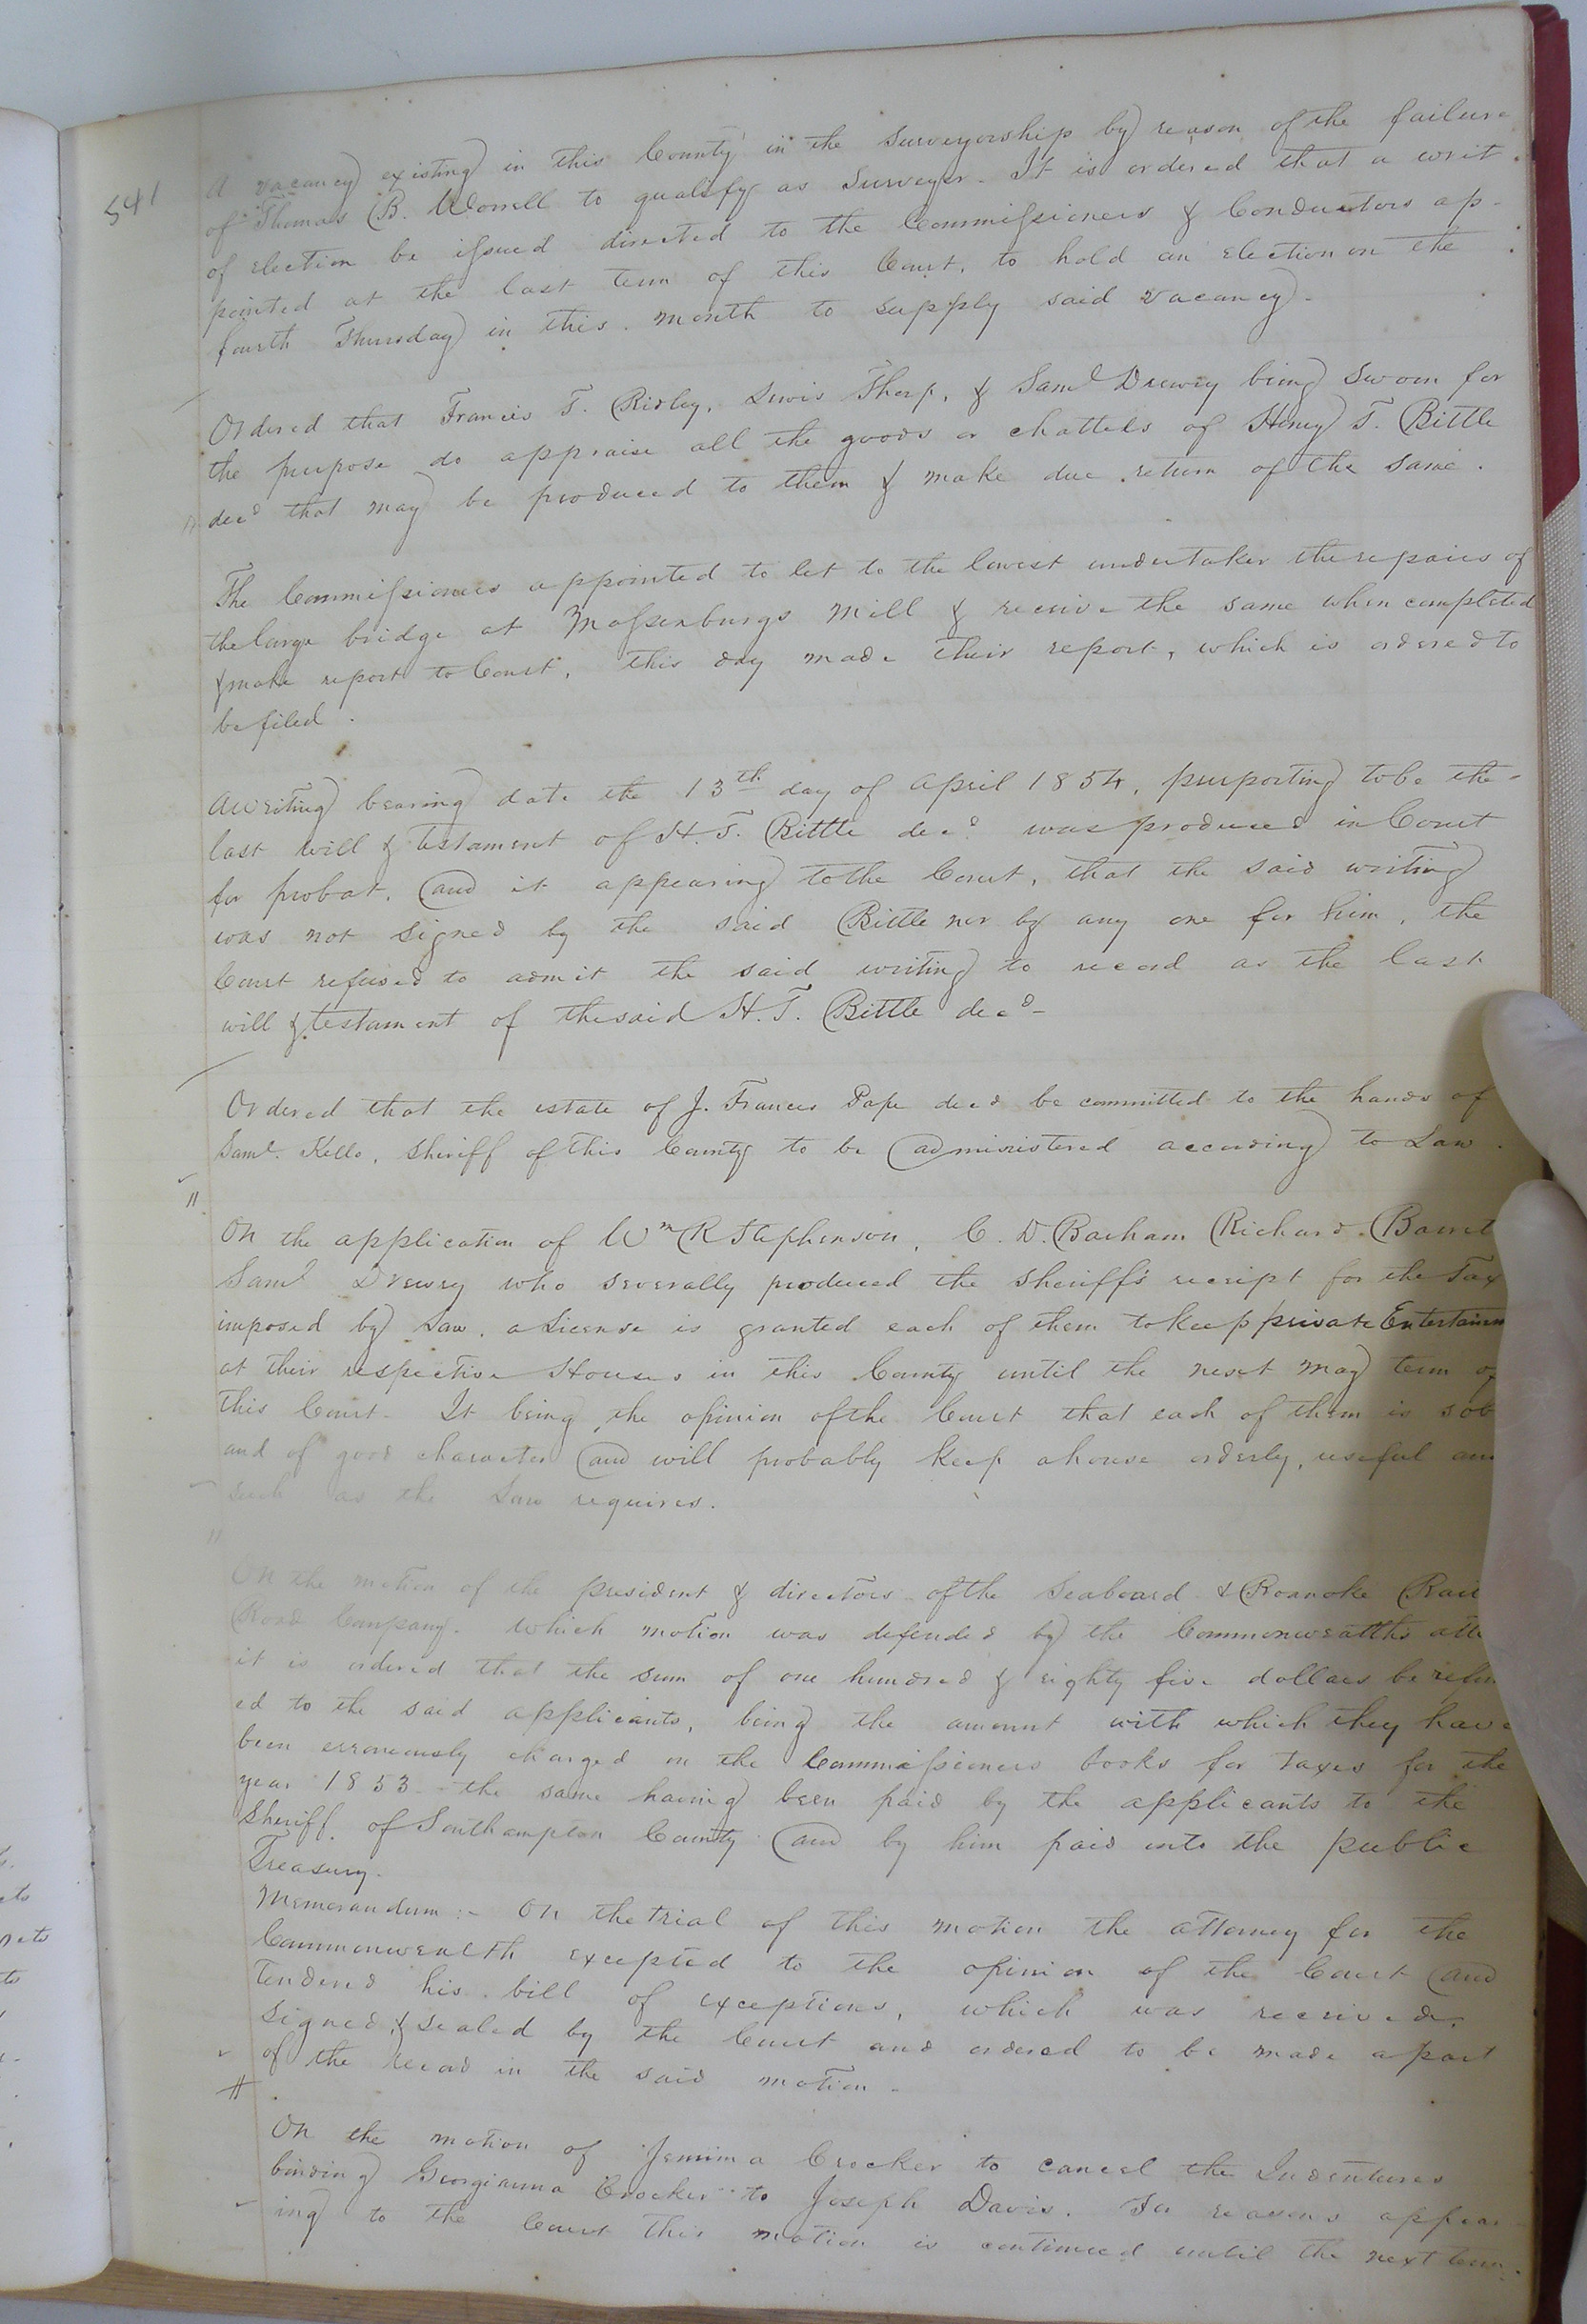 541
A vacancy existing in this County in the Surveyorship by reason of the failure
of Thomas B. Worrell to qualify as Surveyor. It is ordered that a writ
of election be issued directed to the Commissioners & Conductors ap-
pointed at the last term of this Court, to hold an election on the
fourth Thursday in this month to supply said vacancy.
Ordered that Francis T. Ridley, Lewis Thorp, & Saml Drewry being sworn for
the purpose do appraise all the goods or chattels of Henry T. Bittle
decd that may be produced to them & make due return of the same.
The Commissioners appointed to let to the lowest undertaker the repairs of
the large bridge at Massenburgs Mill & receive the same when completed
& make report to Court, this day made their report, which is ordered to
be filed.
A writing bearing date the 13th day of April 1854, purporting to be the
last will & testament of H. T. Bittle decd was produced in Court
for probat, and it appearing to the Court, that the said writing
was not signed by the said Bittle nor by any one for him, the
Court refused to admit the said writing to record as the last
will & testament of the said H. T. Bittle decd-
Ordered that the estate of J. Frances Pope decd be committed to the hands of
Saml. Kello, Sheriff of this County to be administered according to Law.
On the application of Wm R Stephenson, C. D. Barham Richard Barret
Saml Drewry who severally produced the sheriff's receipt for the Tax
imposed by Law, a License is granted each of them to keep private Entertainm
at their respective Houses in this County until the next May term of
this Court. It being the opinion of the Court that each of them is sob
and of good character and will probably keep a house orderly, useful an
such as the Law requires.
On the motion of the president & directors of the Seaboard & Roanoke Rail
Road Company. Which motion was defended by the Commonwealth's atto
it is ordered that the sum of one hundred & eighty five dollars be refun
ed to the said applicants, being the amount with which they have
been erroneously charged on the Commissioners books for taxes for the
year 1853 - the same having been paid by the applicants to the
Sheriff of Southampton County and by him paid into the public
Treasury.
Memorandum :- On the trial of this motion the attorney for the
Commonwealth excepted to the opinion of the Court and
tendered his bill of exceptions, which was received,
signed, & sealed by the Court and ordered to be made a part
of the record in the said motion.
On the motion of Jemima Crocker to cancel the Indentures
binding Georgianna Crocker to Joseph Davis. For reasons appear-
ing to the Court this motion is continued until the next term.